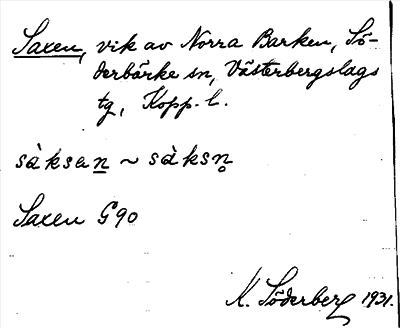 Saxen, vik av Norra Barken, Sö-
derbärke sn, Västerbergslags
tg, Kopp. l.
sàksan ~ sàksn̥
Saxen G90
K. Söderberg 1931.